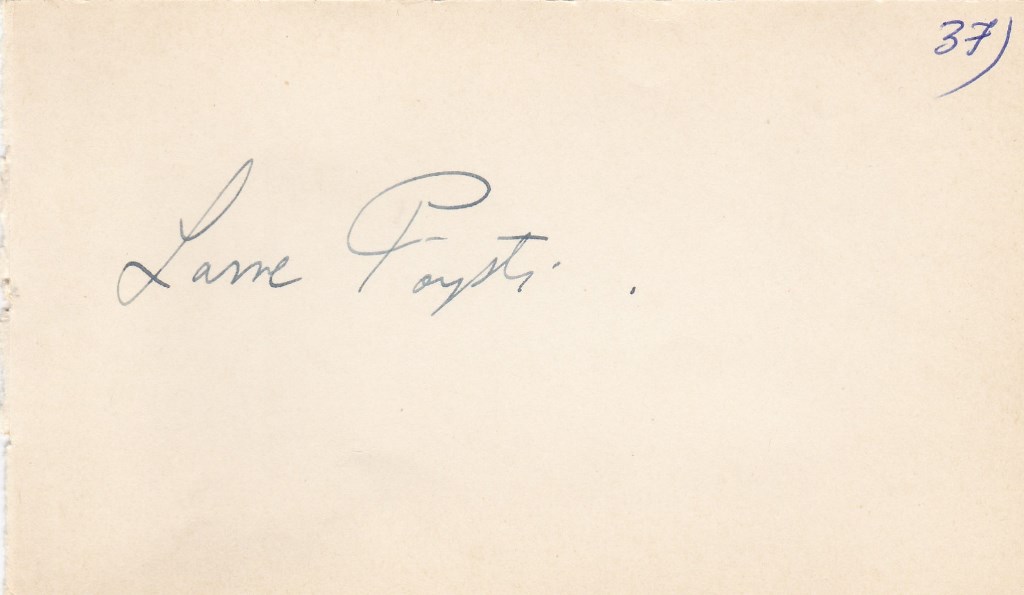 37)
Lasse Pöysti